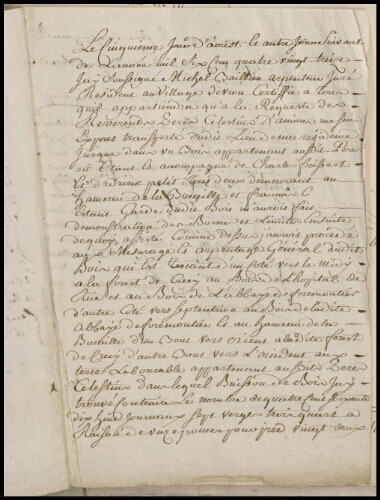 Le Cinquieme Jour d'aoust & autre Jours suivant
de L'année mil Six Cens quatre vingt treize
Je Soussigné Michel Vaillian arpenteur Juré
Resident au Village de certiffie a tous
quil appartiendra qu'a la Requeste des
Reverends Peres Celestins D'amiens me suis
Expres transporté dudit Lieu de ma residence
Jusque dans un Bois appartenant ausdits Peres
ou Etant & accompagné de Charle froissart
& d'adrien petit tous deux demeurant au
hameau de la & francois
Gardes dudit Bois m'auroit fait
demonstration des Bornes et Limites Ensuite
de quoy apres Comme dessus j'aurois procedé
au Mesurage & arpentage General dudit
Bois qui Est Tenant d'un Coté vers le Midy
a la forest de Crecy au Bois de L'hopital de
Rue et au Bois de L'abbaye de foremontier
d'autre Coté vers septentrion au Bois de ladite
Abbaye de foremontier & au hameau de la
d'un Bout vers orient a ladite forest
de Crecy d'autre Bout vers L'occident aux
terres Labourable appartenant ausdits Peres
Celestins dans lequel Buisson & Bois Jay
trouvé Contenir Le nombre de quatre Cens soixante
dix huit Journeaux sept verges trois quart a
Raison de pour pied vingt deux